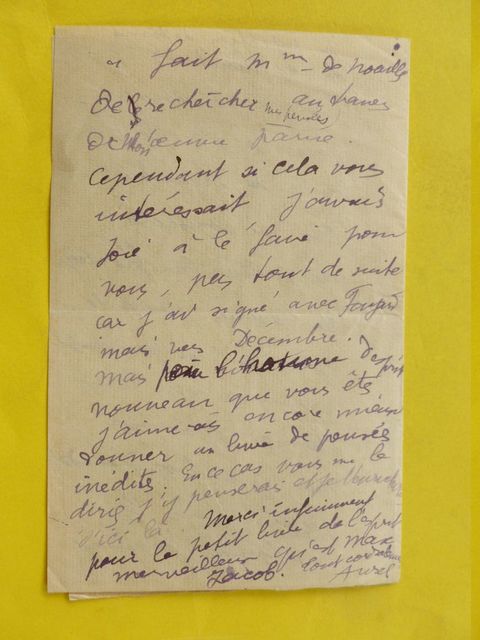 a fait Mme de Noailles
de rechercher au travers mes pensées
de mon œuvre
cependant si cela vous
intéressait j'aurais
joie à le faire pour
vous, pas tout de suite
car j'ai signé avec
mais vers Décembre.
mais
nouveau que vous êtes
j'aimerais encore mieux
donner un livre de pensées
inédites. En ce cas vous me le
diriez j'y penserais et
d'ici là Merci infiniment
pour le petit livre de l'esprit
merveilleux qu'est Max
Jacob. tout
Aurel